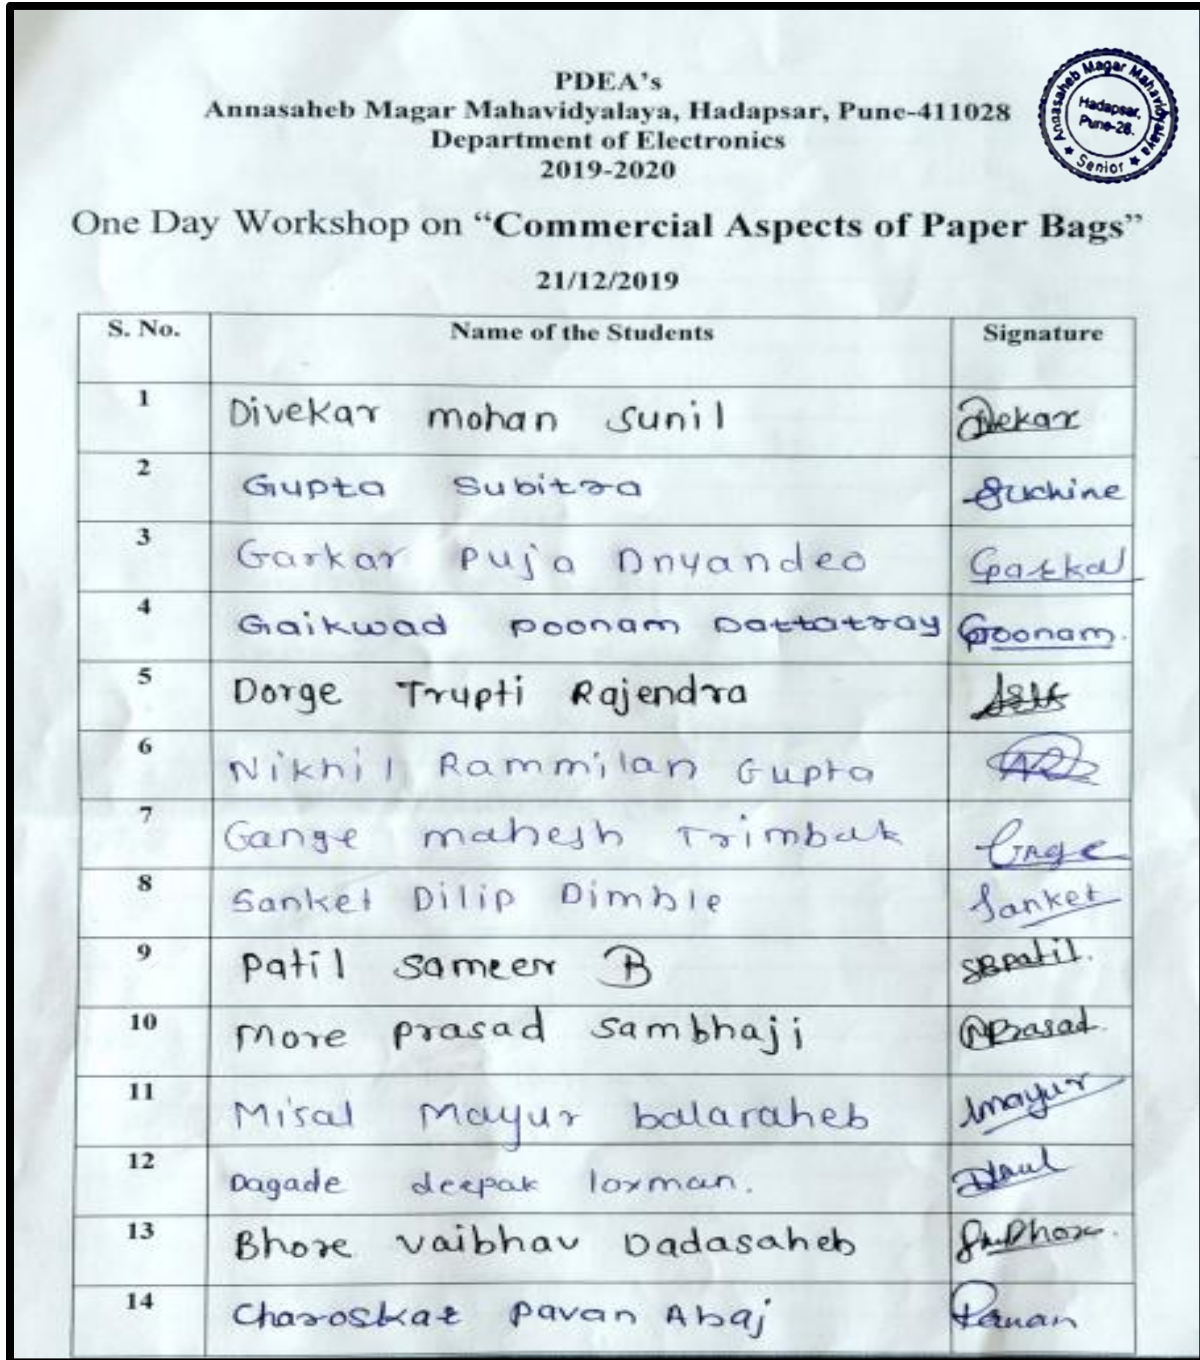 PDEA's
Annasaheb Magar Mahavidyalaya, Hadapsar, Pune-411028
Department of Electronics
2019-2020
Annasaheb Magar Mahavidyalaya
Hadapsar,
Pune-28.
★ Senior ★
One Day Workshop on “Commercial Aspects of Paper Bags”
21/12/2019
S. No. Name of the Students Signature
1 Divekar mohan sunil
2 Gupta Subitra
3 Garkar Puja Dnyandeo Garkar
4 Gaikwad Poonam Dattatray Poonam.
5 Dorge Trupti Rajendra
6 Nikhil Rammilan Gupta
7 Gange mahesh Trimbak
8 Sanket Dilip Dimble Sanket
9 Patil Sameer B SBPatil.
10 More prasad sambhaji Prasad.
11 Misal Mayur balaraheb mayur
12 Dagade deepak loxman.
13 Bhore vaibhav Dadasaheb
14 Charoskar Pavan Abaj